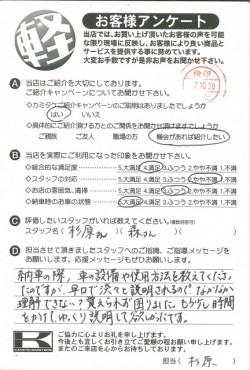 軽
お客様アンケート
当店では、お買い上げ頂いたお客様の声を可能
な限り現場に反映し、お客様により良い商品と
サービスを提供する事に努めています。
大変お手数ですが是非お声をお聞かせ下さい。
A 当店はご紹介を大切にしております。
ご紹介キャンペーンについてお聞かせ下さい。
◇カミタケご紹介キャンペーンのご説明はありましたでしょうか
はい いいえ
◇具体的にご紹介頂ける方との関係をお聞かせいただけますでしょうか
ご親族 ご友人 職場の方 機会があれば紹介したい
B 当店を実際にご利用になった印象をお聞かせ下さい。
◇総合的な満足度 5.大満足 4.満足 3.ふつう 2.やや不満 1.不満
◇スタッフの対応 5.大満足 4.満足 3.ふつう 2.やや不満 1.不満
◇お店の雰囲気、清掃 5.大満足 4.満足 3.ふつう 2.やや不満 1.不満
◇納車時のお車の状態 5.大満足 4.満足 3.ふつう 2.やや不満 1.不満
C 評価したいスタッフがいれば教えてください。(複数回答可)
スタッフ名( 杉原さん )( 森さん )
D 担当させて頂きましたスタッフへのご指摘、ご指導メッセージを
お願いします。応援メッセージもぜひお願いします。
納車の際、車の設備や使用方法を教えてくださっ
たのですが、早口で淡々と説明されるのでなかなか
理解できない?覚えられず困りました。もう少し時間
をかけて、ゆっくり説明して欲しかったです。
ご協力に心よりお礼を申し上げます。
今後とも宜しくお引き立てご愛顧の程お願い申し上げます。
またのご来店を心からお待ちしております。
担当( 杉原 )